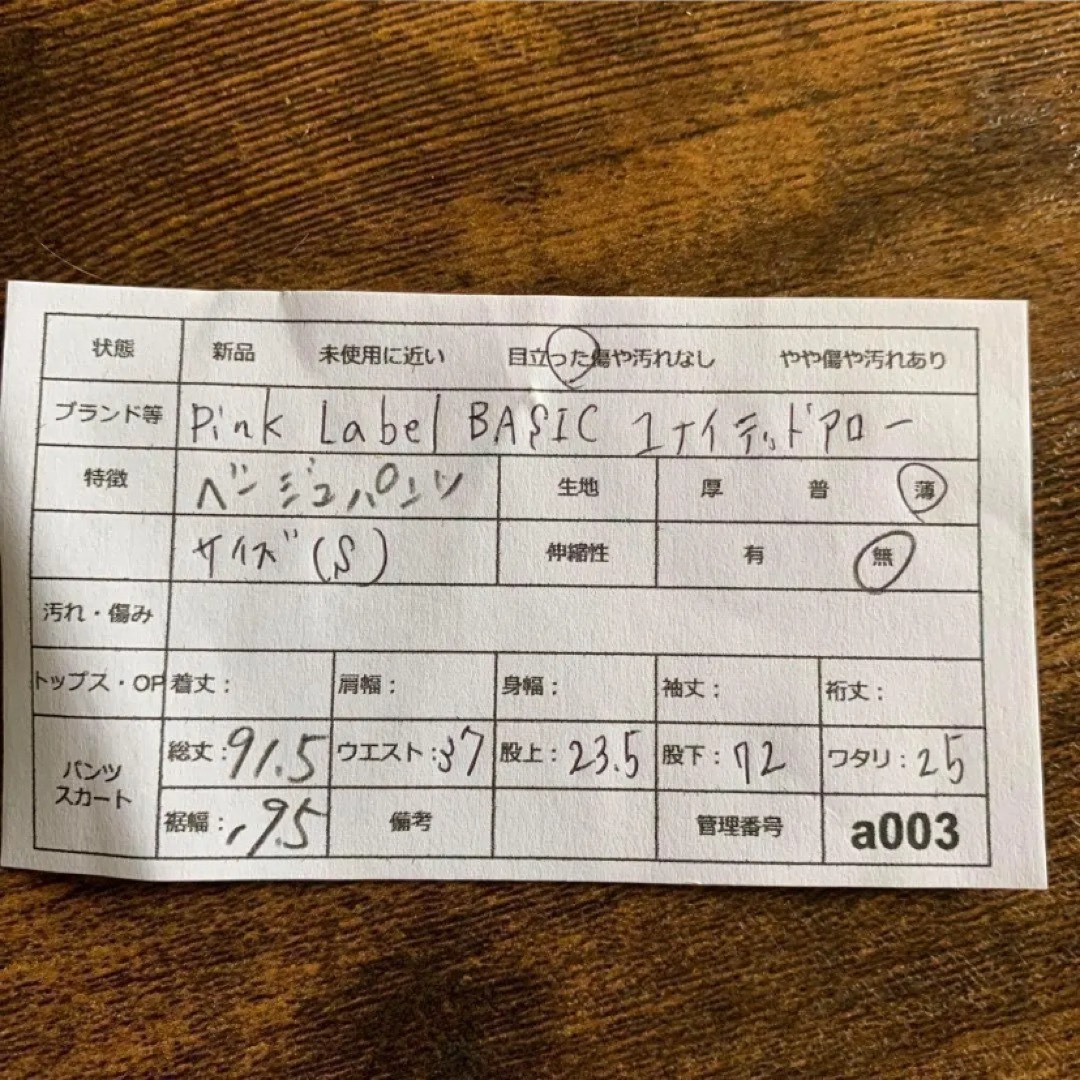 状態 新品 未使用に近い 目立った傷や汚れなし やや傷や汚れあり
ブランド等 Pink Label BASIC ユナイテッドアロー
特徴 ベージュパンツ 生地 厚 普 薄
サイズ(S) 伸縮性 有 無
汚れ・傷み
トップス・OP 着丈: 肩幅: 身幅: 袖丈: 裄丈:
パンツ スカート 総丈:91.5 ウエスト:37 股上:23.5 股下:72 ワタリ:25
裾幅:19.5 備考 管理番号 a003